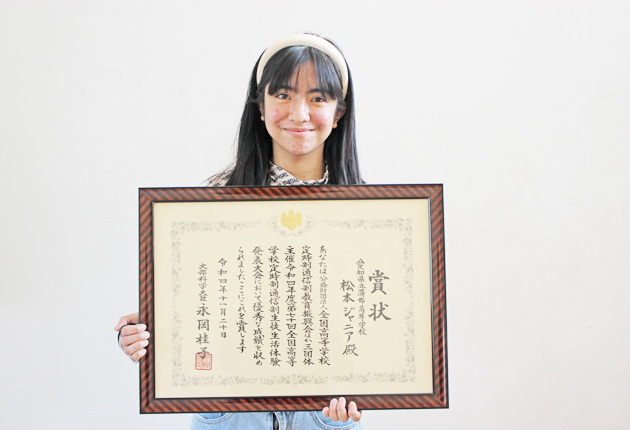 賞状
愛知県立蒲郡高等学校
松本ジャニア殿
あなたは公益財団法人全国高等学校
定時制通信制教育振興会ほか三団体
主催令和四年度第七十回全国高等
学校定時制通信制生徒生活体験
発表大会において優秀な成績を収め
られましたここにこれを賞します
令和四年十一月二十日
文部科学大臣 永岡桂子